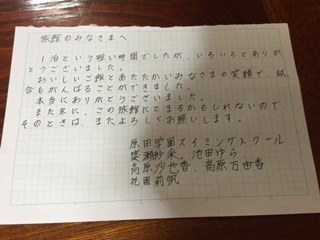 旅館のみなさまへ
1泊という短い時間でしたが、いろいろとありが
とうございました。
おいしいご飯とあたたかいみなさまの笑顔で、試
合もがんばることができました。
本当にありがとうございました。
また冬に、この旅館にとまるかもしれないので
そのときは、またよろしくお願いします。
原田学園スイミングスクール
築瀬紗采、池田ゆら、
高原沙也香、高原万由香
花園莉帆